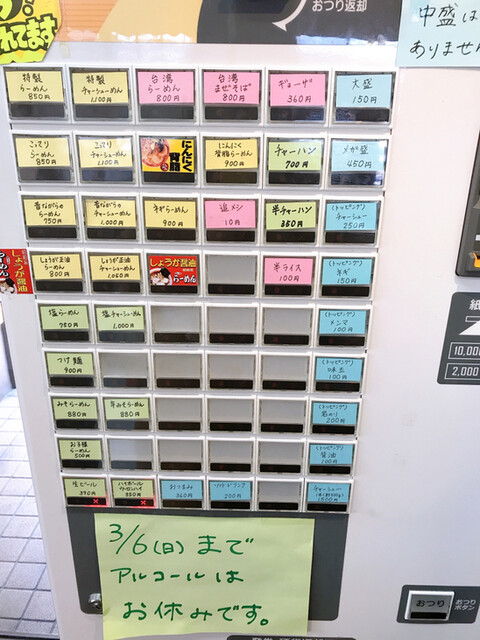 おつり返却
れてます
中盛は
ありません
特製
らーめん
850円
特製
チャーシューめん
1,100円
台湾
らーめん
800円
台湾
まぜそば
800円
ギョーザ
360円
大盛
150円
こってり
らーめん
850
こってり
チャーシューめん
1,100円
にんにく
背脂
にんにく
背脂らーめん
900円
チャーハン
700円
メガ盛
450円
昔ながらの
らーめん
750円
昔ながらの
チャーシューめん
1,000円
ネギらーめん
900円
追メシ
10円
半チャーハン
350円
(トッピング)
チャーシュー
250円
しょうが醤油
らーめん
しょうが正油
らーめん
800円
しょうが正油
チャーシューめん
1,050円
しょうが醤油
らーめん
半ライス
100円
(トッピング)
ネギ
150円
塩らーめん
750円
塩チャーシューめん
1,000円
(トッピング)
メンマ
100円
つけ麺
900円
(トッピング)
味玉
100円
みそらーめん
880円
辛みそらーめん
880円
(トッピング)
200円
お子様
らーめん
500円
(トッピング)
背油
100円
生ビール
390円
ハイボール
ウーロンハイ
350円
おつまみ
360円
ソフトドリンク
200円
チャーシュー
1,500円
紙
10,000
2,000
3/6(日)まで
アルコールは
お休みです。
おつり
おつり
ボタン